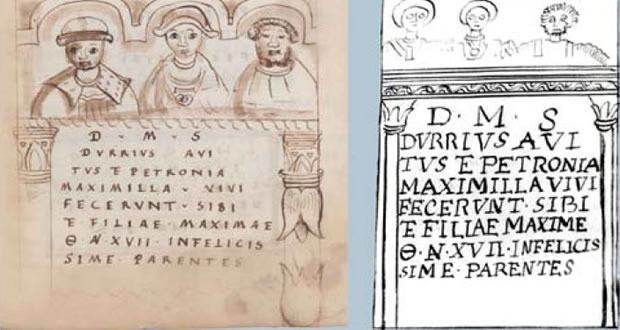 D · M · S
DVRRIVS AVI
TVS E PETRONIA
MAXIMILLA · VIVI
FECERVNT · SIBI
E FILIAE · MAXIMAE
Θ · N · XVII · INFELICIS
SIME · PARENTES
D. M. S
DVRRIVS AVI
TVS E PETRONIA
MAXIMILLA VIVI
FECERVNT · SIBI
E FILIAE MAXIME
Θ · N · XVII · INFELICIS
SIME · PARENTES